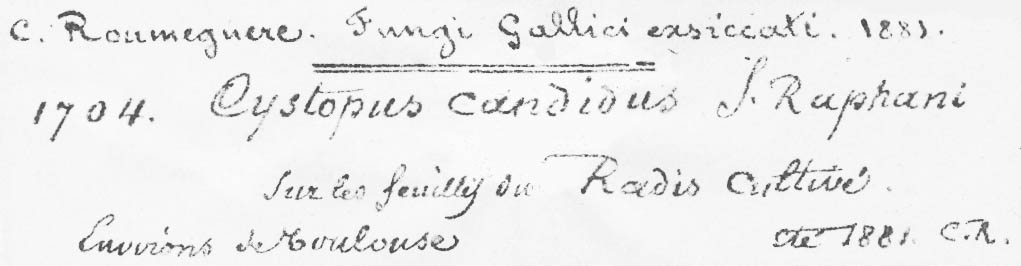 C. Roumeguere. Fungi Gallici exsiccati. 1881.
1704. Cystopus candidus f. Raphani
Sur les feuilles du Radis Cultivé.
Environs de Toulouse Eté 1881. C.R.